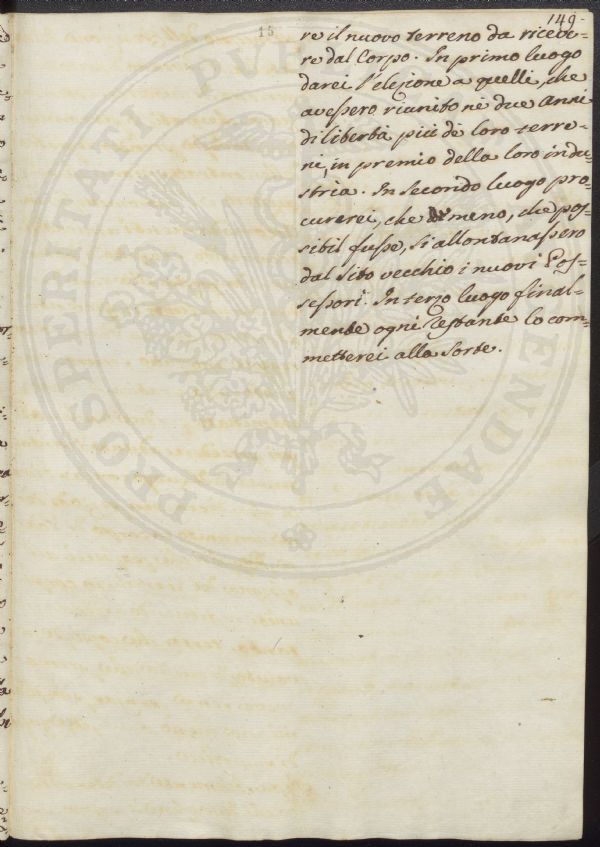 149.
15
re il nuovo terreno da riceve=
re dal Corpo. In primo luogo
darei l'elezione a quelli, che
avessero riunito ne due anni
di libertà più de loro terre=
ni, in premio della loro indu=
stria. In secondo luogo pro=
curerei, che il meno, che pos=
sibil fusse, si allontanassero
dal sito vecchio i nuovi Pos=
sessori. In terzo luogo final=
mente ogni restante lo com=
metterei alla sorte.
PROSPERITATI PUB AUGENDAE